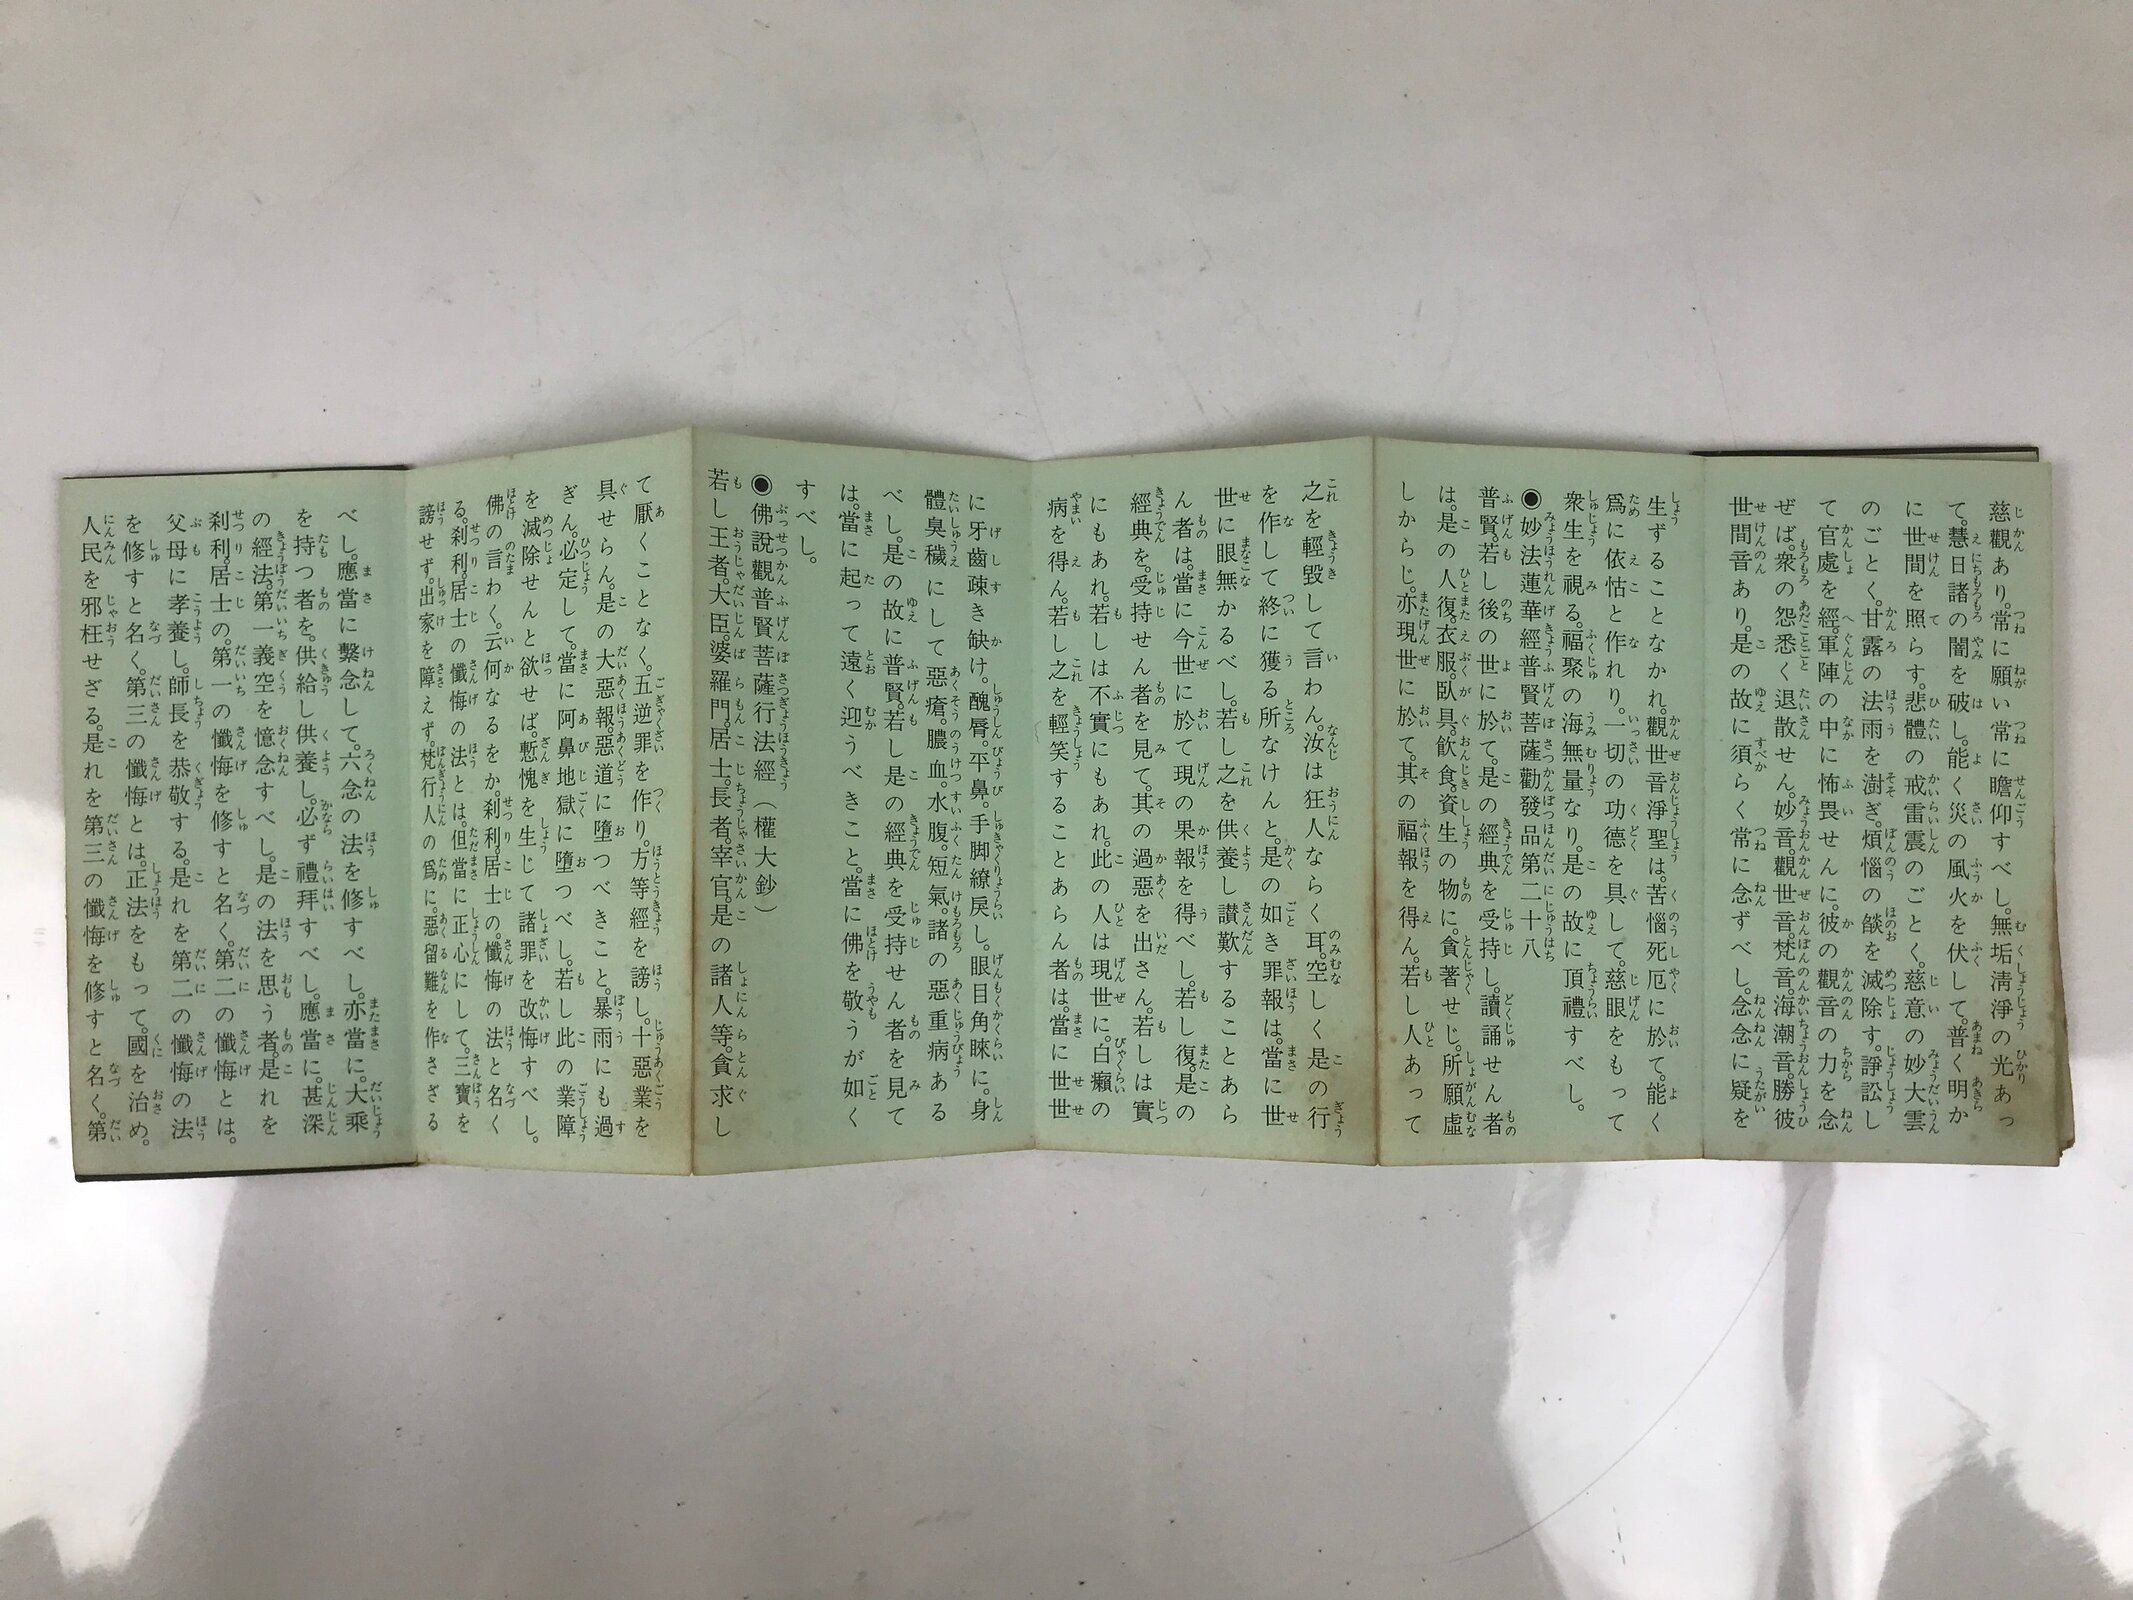 慈觀あり。常に願い常に瞻仰すべし。無垢淸淨の光あっ
て。慧日諸の闇を破し。能く災の風火を伏して。普く明か
に世間を照らす。悲體の戒雷震のごとく。慈意の妙大雲
のごとく。甘露の法雨を澍ぎ。煩惱の燄を滅除す。諍訟し
て官處を經。軍陣の中に怖畏せんに。彼の觀音の力を念
ぜば。衆の怨悉く退散せん。妙音。觀世音。梵音。海潮音。勝彼
世間音あり。是の故に須らく常に念ずべし。念念に疑を
生ずることなかれ。觀世音淨聖は。苦惱死厄に於て。能く
爲に依怙と作れり。一切の功德を具して。慈眼をもって
衆生を視る。福聚の海無量なり。是の故に頂禮すべし。
◉妙法蓮華經普賢菩薩勸發品第二十八
普賢。若し後の世に於て。是の經典を受持し。讀誦せん者
は。是の人復。衣服。臥具。飮食。資生の物に。貪著せじ。所願虛
しからじ。亦現世に於て。其の福報を得ん。若し人あって
之を輕毀して言わん。汝は狂人ならく耳。空しく是の行
を作して終に獲る所なけんと。是の如き罪報は。當に世
世に眼無かるべし。若し之を供養し讃歎することあら
ん者は。當に今世に於て現の果報を得べし。若し復。是の
經典を。受持せん者を見て。其の過惡を出さん。若しは實
にもあれ。若しは不實にもあれ。此の人は現世に。白癩の
病を得ん。若し之を輕笑することあらん者は。當に世世
に牙齒疎き缺け。醜脣。平鼻。手脚繚戾し。眼目角睞に。身
體臭穢にして惡瘡。膿血。水腹。短氣。諸の惡重病ある
べし。是の故に普賢。若し是の經典を受持せん者を見て
は。當に起って遠く迎うべきこと。當に佛を敬うが如く
すべし。
◉佛說觀普賢菩薩行法經（權大鈔）
若し王者。大臣。婆羅門。居士。長者。宰官。是の諸人等。貪求し
て厭くことなく。五逆罪を作り。方等經を謗し。十惡業を
具せらん。是の大惡報。惡道に墮つべきこと。暴雨にも過
ぎん。必定して。當に阿鼻地獄に墮つべし。若し此の業障
を滅除せんと欲せば。慙愧を生じて諸罪を改悔すべし。
佛の言わく。云何なるをか。刹利居士の。懺悔の法と名く
る。刹利。居士の懺悔の法とは。但當に正心にして。三寶を
謗せず。出家を障えず。梵行人の爲に。惡留難を作さざる
べし。應當に繫念して。六念の法を修すべし。亦當に。大乘
を持つ者を。供給し供養し。必ず禮拜すべし。應當に。甚深
の經法。第一義空を憶念すべし。是の法を思う者。是れを
刹利。居士の。第一の懺悔を修すと名く。第二の懺悔とは。
父母に孝養し。師長を恭敬する。是れを第二の懺悔の法
を修すと名く。第三の懺悔とは。正法をもって。國を治め。
人民を邪枉せざる。是れを第三の懺悔を修すと名く。第